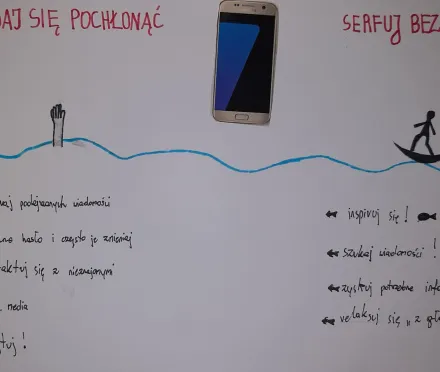 DAJ SIĘ POCHŁONĄĆ
SERFUJ BEZ
podejrzanych wiadomości
hasło i często je zmieniaj
się z nieznajomymi
media
inspiruj się !
szukaj wiadomości !
zyskuj potrzebne info
relaksuj się „ z